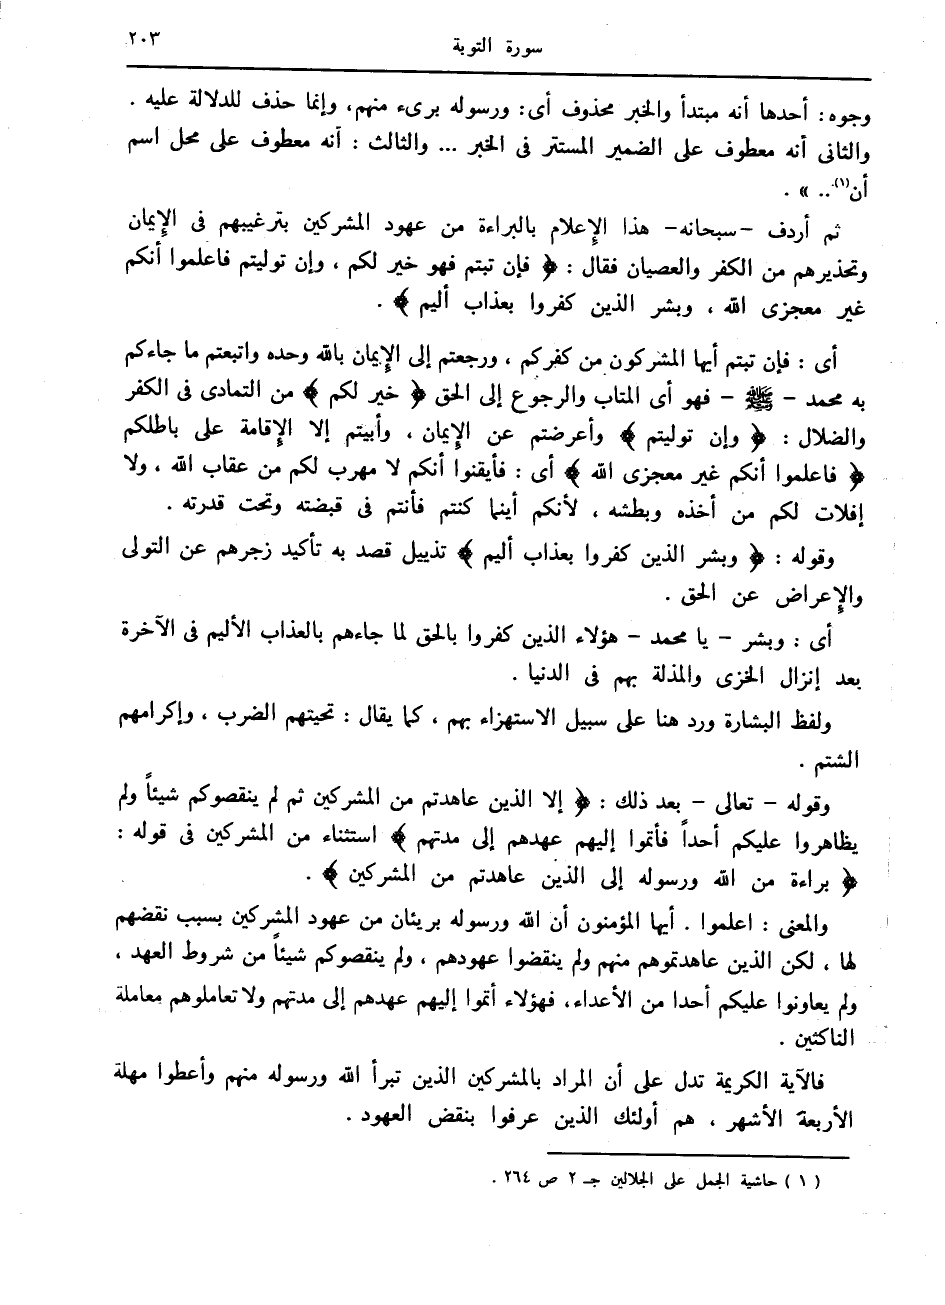 سورة التوبة ٢٠٣
وجوه : أحدها أنه مبتدأ والخبر محذوف أى : ورسوله برىء منهم، وإنما حذف للدلالة عليه .
والثانى أنه معطوف على الضمير المستتر فى الخبر ... والثالث : أنه معطوف على محل اسم
أن(١).. » .
ثم أردف -سبحانه- هذا الإعلام بالبراءة من عهود المشركين بترغيبهم فى الإيمان
وتحذيرهم من الكفر والعصيان فقال : ﴿ فإن تبتم فهو خير لكم ، وإن توليتم فاعلموا أنكم
غير معجزى الله ، وبشر الذين كفروا بعذاب أليم ﴾ .
أى : فإن تبتم أيها المشركون من كفركم ، ورجعتم إلى الإيمان بالله وحده واتبعتم ما جاءكم
به محمد - ﷺ - فهو أى المتاب والرجوع إلى الحق ﴿ خير لكم ﴾ من التمادى فى الكفر
والضلال : ﴿ وإن توليتم ﴾ وأعرضتم عن الإيمان ، وأبيتم إلا الإقامة على باطلكم
﴿ فاعلموا أنكم غير معجزى الله ﴾ أى : فأيقنوا أنكم لا مهرب لكم من عقاب الله ، ولا
إفلات لكم من أخذه وبطشه ، لأنكم أينما كنتم فأنتم فى قبضته وتحت قدرته .
وقوله : ﴿ وبشر الذين كفروا بعذاب أليم ﴾ تذييل قصد به تأكيد زجرهم عن التولى
والإعراض عن الحق .
أى : وبشر - يا محمد - هؤلاء الذين كفروا بالحق لما جاءهم بالعذاب الأليم فى الآخرة
بعد إنزال الخزى والمذلة بهم فى الدنيا .
ولفظ البشارة ورد هنا على سبيل الاستهزاء بهم ، كما يقال : تحيتهم الضرب ، وإكرامهم
الشتم .
وقوله - تعالى - بعد ذلك : ﴿ إلا الذين عاهدتم من المشركين ثم لم ينقصوكم شيئاً ولم
يظاهروا عليكم أحداً فأتموا إليهم عهدهم إلى مدتهم ﴾ استثناء من المشركين فى قوله :
﴿ براءة من الله ورسوله إلى الذين عاهدتم من المشركين ﴾ .
والمعنى : اعلموا . أيها المؤمنون أن الله ورسوله بريئان من عهود المشركين بسبب نقضهم
لها ، لكن الذين عاهدتموهم منهم ولم ينقضوا عهودهم ، ولم ينقصوكم شيئاً من شروط العهد ،
ولم يعاونوا عليكم أحدا من الأعداء، فهؤلاء أتموا إليهم عهدهم إلى مدتهم ولا تعاملوهم معاملة
الناكثين .
فالآية الكريمة تدل على أن المراد بالمشركين الذين تبرأ الله ورسوله منهم وأعطوا مهلة
الأربعة الأشهر ، هم أولئك الذين عرفوا بنقض العهود .
( ١ ) حاشية الجمل على الجلالين جـ ٢ ص ٢٦٤ .